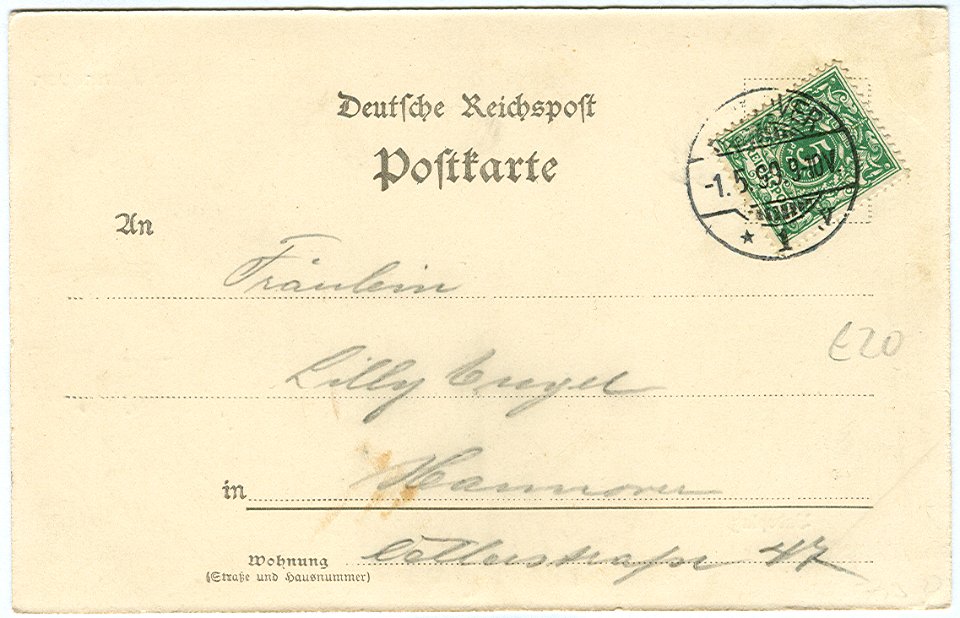 Deutsche Reichspost
Postkarte
5
-1.5.99.9-10V.
* 1 v
An
Fräulein
Lilly Engel
£20
in Hannover
Wohnung
(Straße und Hausnummer)
47